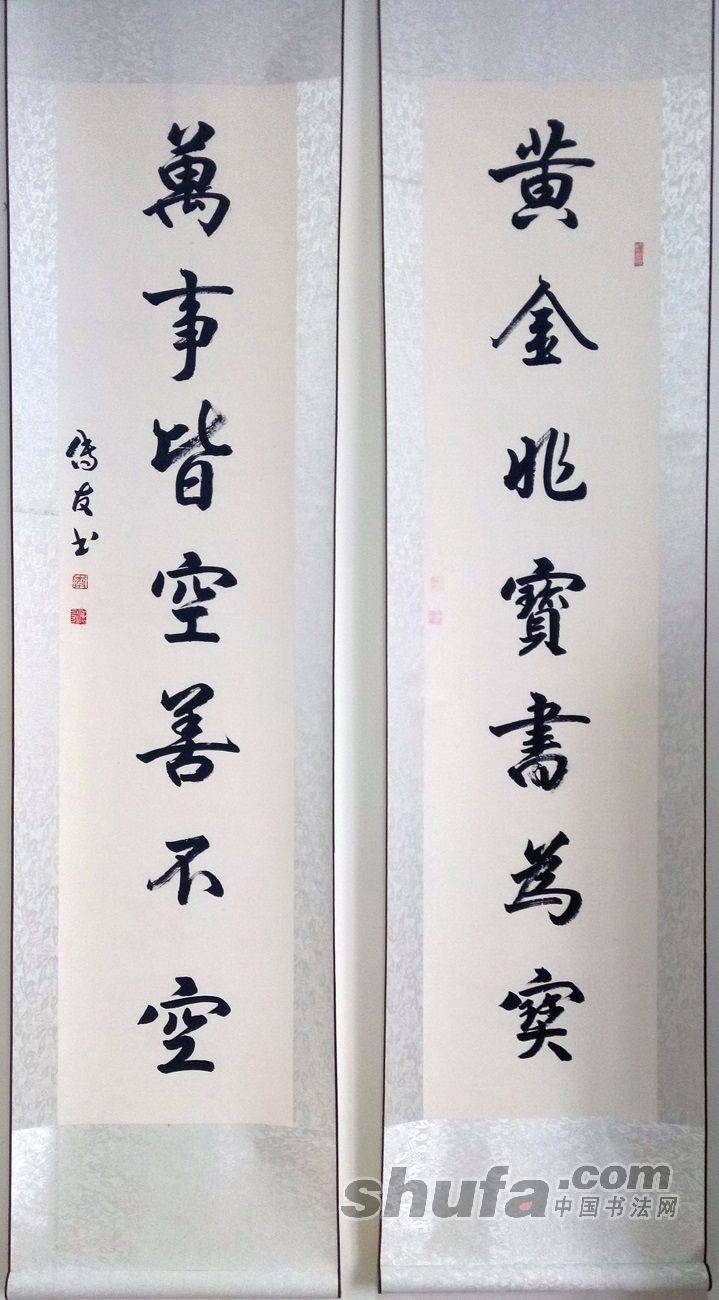 黄金非寶書為寶
萬事皆空善不空
傳友书
shufa.com
中国书法网